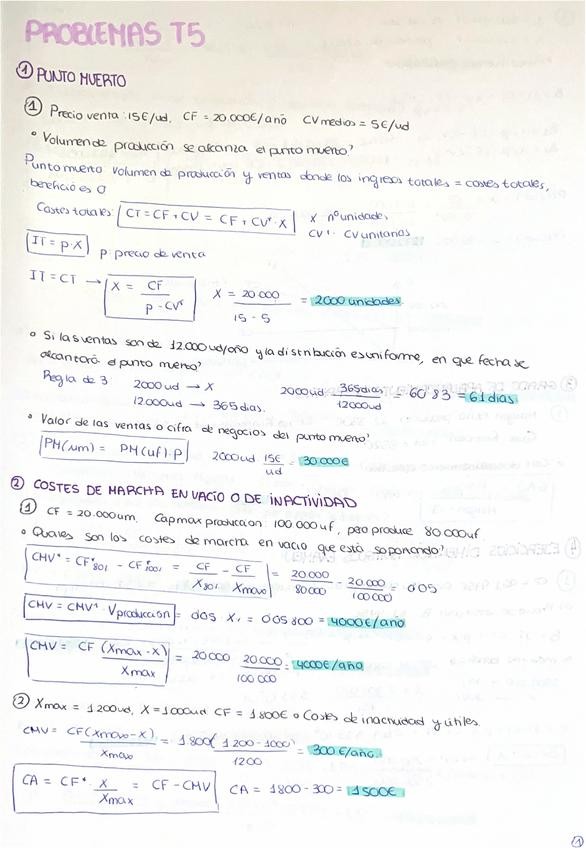 PROBLEMAS T5
① PUNTO MUERTO
① Precio venta: 15€/ud, CF = 20 000€/año CV medios = 5€/ud
° Volumen de producción se alcanza el punto muerto?
Punto muerto volumen de producción y ventas donde los ingresos totales = costes totales,
beneficio es 0
Costes totales: CT = CF + CV = CF + CV* · X X nº unidades
CV* CV unitarios
IT = p · X p precio de venta
IT = CT → X = CF / (p - CV*) X = 20 000 / (15 - 5) = 2000 unidades
° Si las ventas son de 12000 ud/año y la distribución es uniforme, en que fecha se
alcanzará el punto muerto?
Regla de 3 2000 ud → X 2000 ud · 365 días / 12000 ud = 60'83 = 61 días
12000 ud → 365 días.
° Valor de las ventas o cifra de negocios del punto muerto?
PM (um) = PM (uf) · p 2000 ud 15€/ud = 30.000€
② COSTES DE MARCHA EN VACIO O DE INACTIVIDAD
① CF = 20.000 um, Cap max produccion 100 000 uf, pero produce 80 000 uf
° Cuales son los costes de marcha en vacio que está soportando?
CMV* = CF*801 - CF*1001 = CF / X801 - CF / Xmax = 20 000 / 80 000 - 20 000 / 100 000 = 0'05
CMV = CMV* · Vproducción = 0'05 · X, = 0'05 800 = 4000€/año
CMV = CF (Xmax - X) / Xmax = 20 000 20 000 / 100 000 = 4000€/año
② Xmax = 1200ud, X = 1000ud CF = 1800€ ° Costes de inactividad y útiles.
CMV = CF (Xmax - X) / Xmax = 1800 (1200 - 1000) / 1200 = 300 €/año.
CA = CF* · X / Xmax = CF - CMV CA = 1800 - 300 = 1500€
①